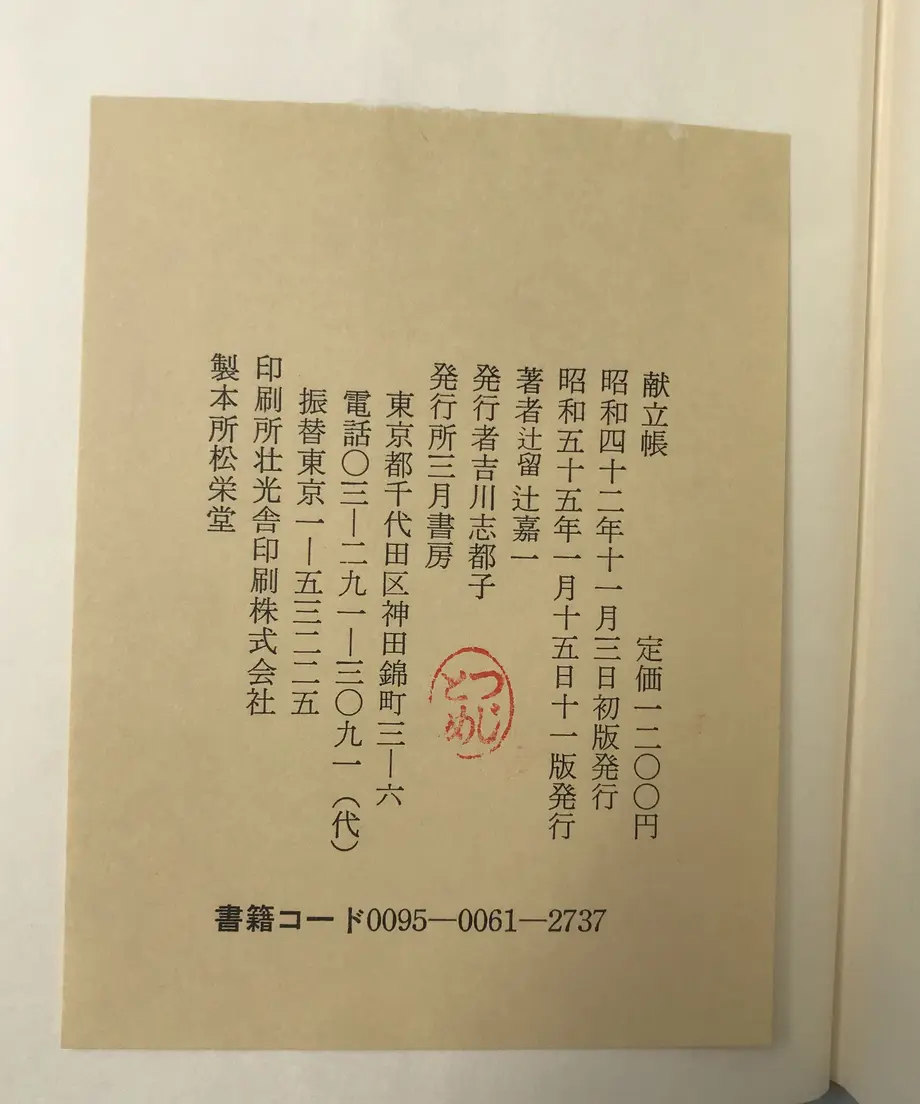 献立帳 定価一二〇〇円
昭和四十二年十一月三日初版発行
昭和五十五年一月十五日十一版発行
著者辻留 辻嘉一
発行者吉川志都子
発行所三月書房
東京都千代田区神田錦町三―六
電話〇三―二九一―三〇九一（代）
振替東京一―五三二二五
印刷所壮光舎印刷株式会社
製本所松栄堂
つじ
とめ
書籍コード0095―0061―2737